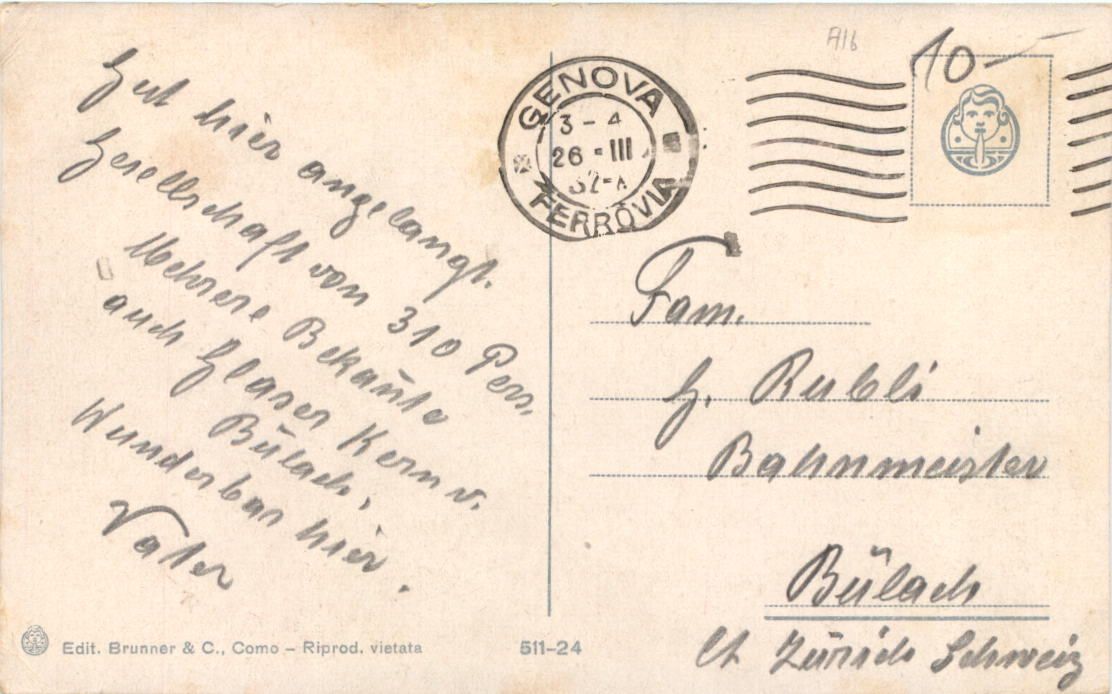 Gut hier angelangt.
Gesellschaft von 310 Pers.
Mehrere Bekan̄te
auch Glaser Kern v.
Bülach,
Wunderbar hier.
Vater
A16
10-
GENOVA
3-4
26-III
32-X
FERROVIA
Fam.
G. Rubli
Bahnmeister
Bülach
Ct Zürich Schweiz
Edit. Brunner & C., Como – Riprod. vietata
511-24